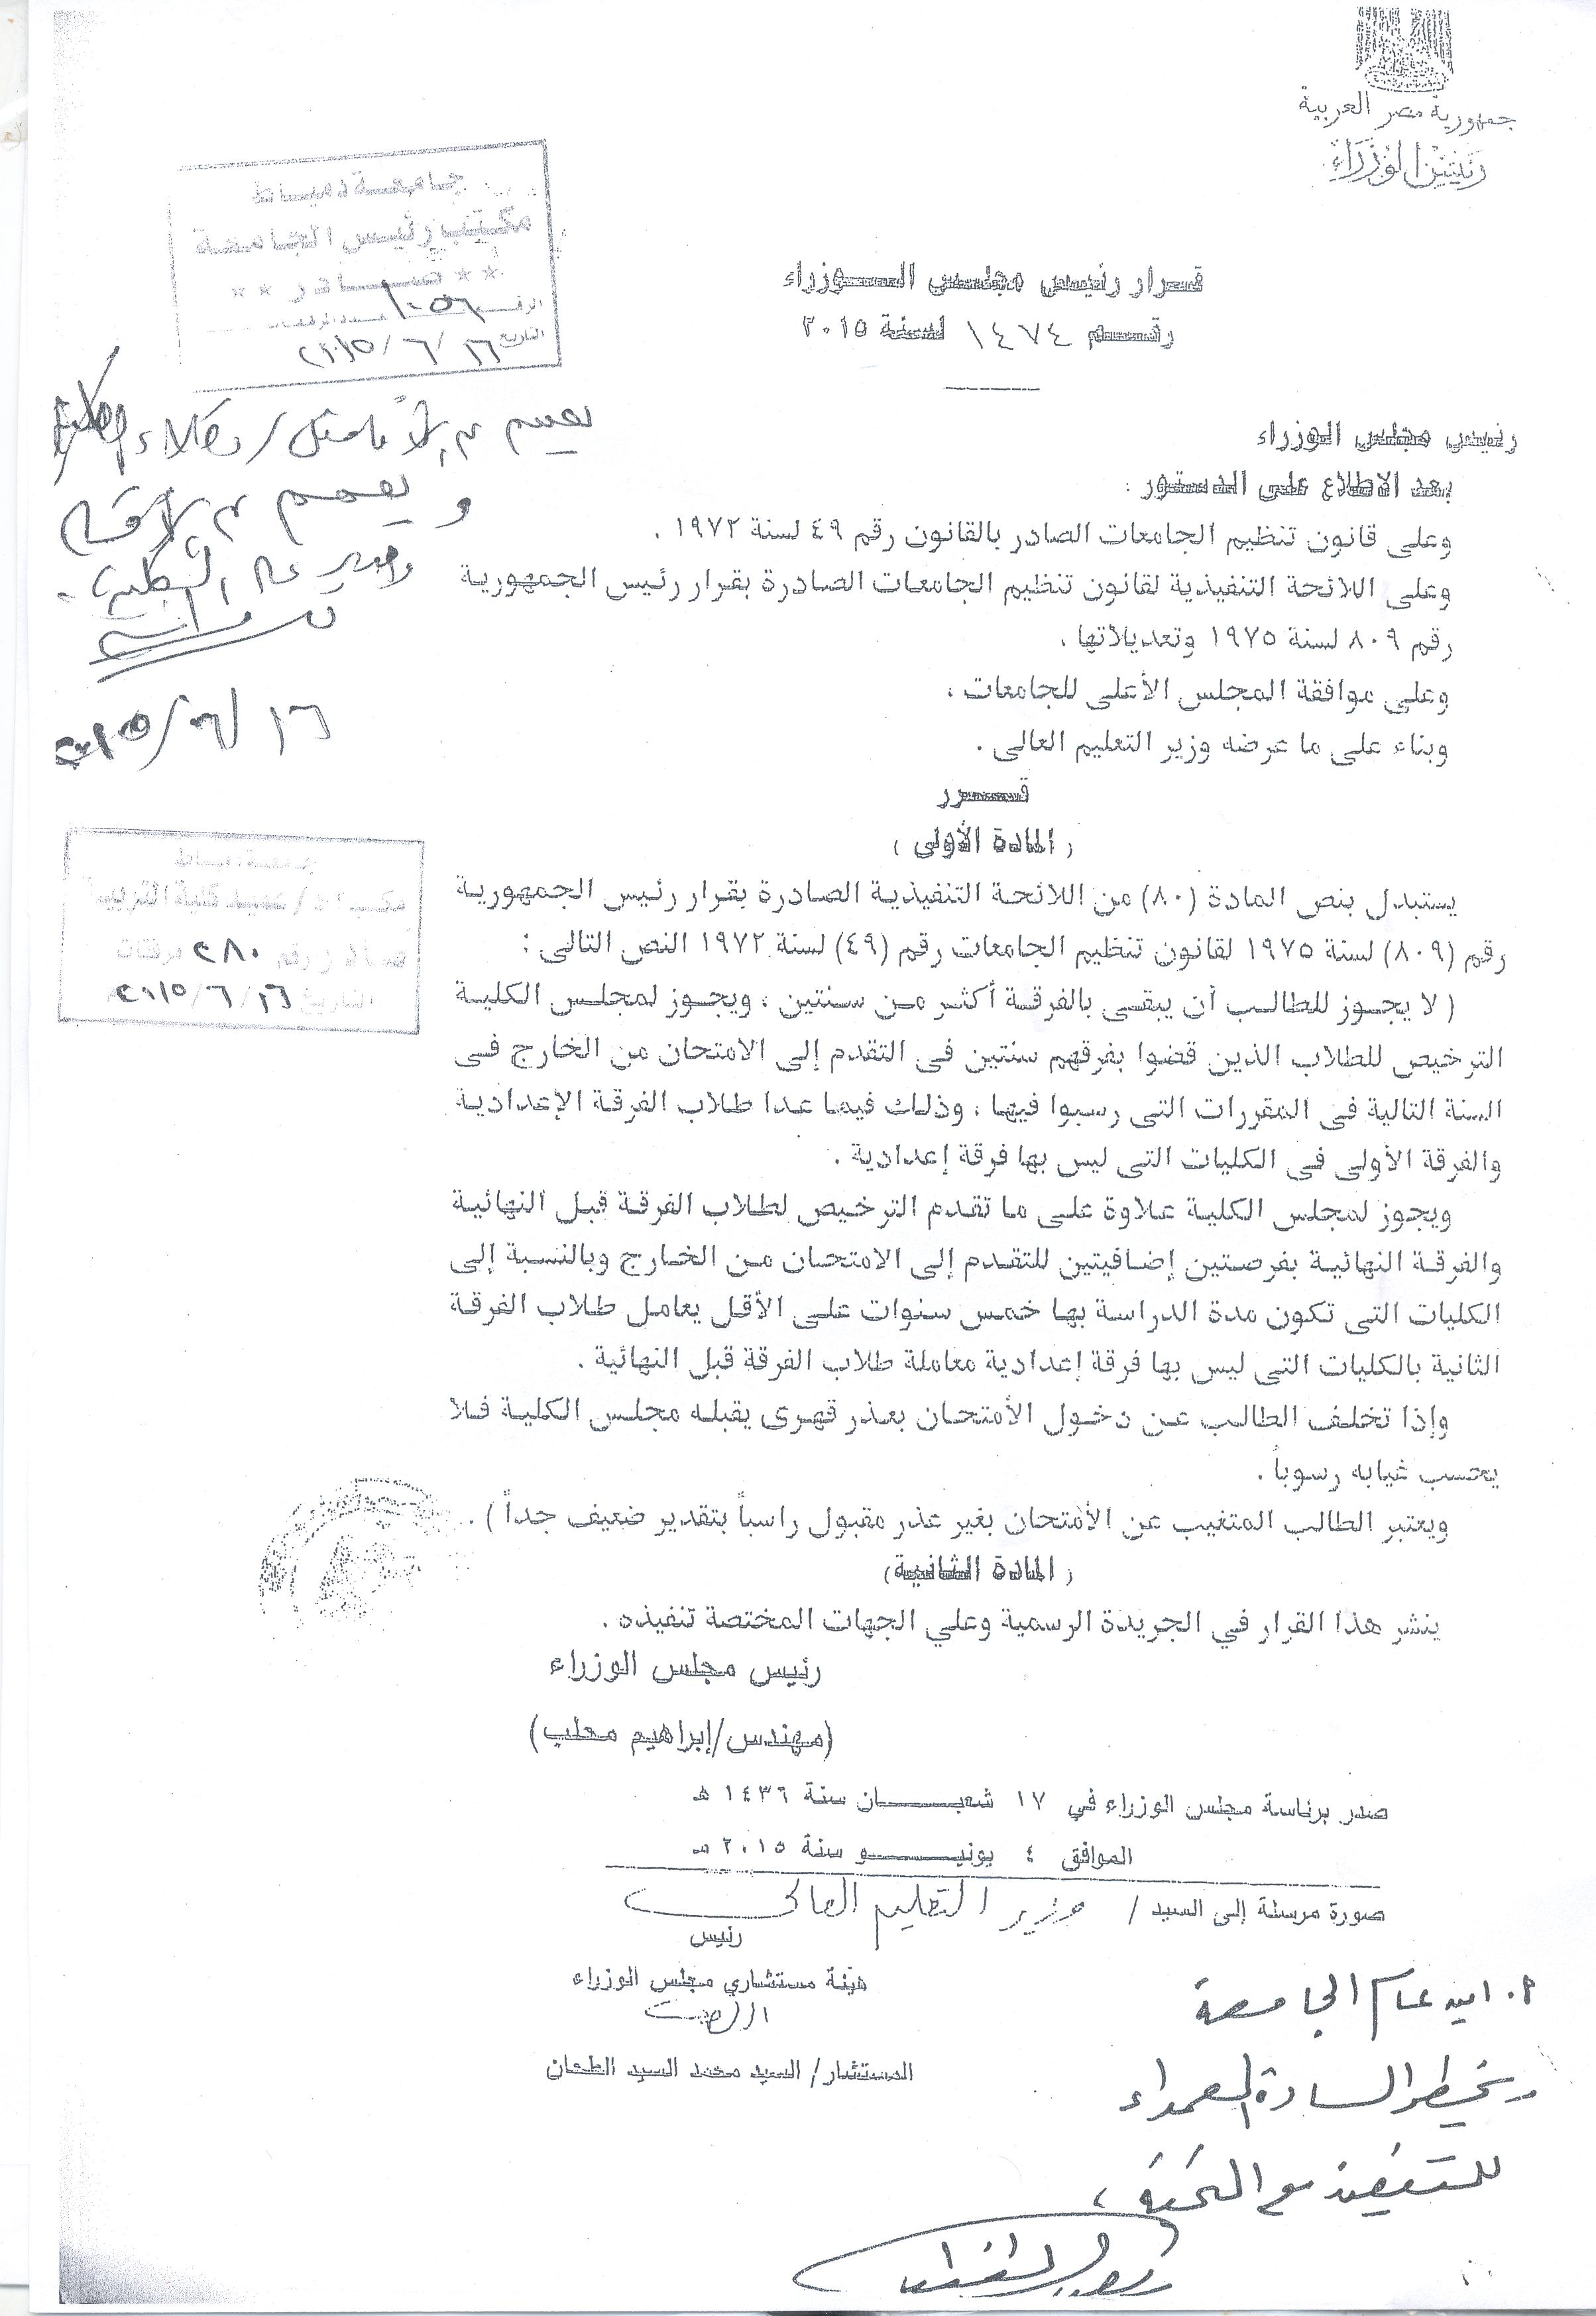 جمهورية مصر العربية
رئيس الوزراء
جامعة دمياط
مكتب رئيس الجامعة
** صادر **
الرقم ١٠٥٦ عدد المرفقات
التاريخ ١٦/٦/٢٠١٥
قرار رئيس مجلس الوزراء
رقم ١٤٧٤ لسنة ٢٠١٥
رئيس مجلس الوزراء
بعد الاطلاع على الدستور :
وعلى قانون تنظيم الجامعات الصادر بالقانون رقم ٤٩ لسنة ١٩٧٢ .
وعلى اللائحة التنفيذية لقانون تنظيم الجامعات الصادرة بقرار رئيس الجمهورية
رقم ٨٠٩ لسنة ١٩٧٥ وتعديلاتها .
وعلى موافقة المجلس الأعلى للجامعات ،
وبناء على ما عرضه وزير التعليم العالى .
قـــرر
( المادة الأولى )
يستبدل بنص المادة (٨٠) من اللائحة التنفيذية الصادرة بقرار رئيس الجمهورية
رقم (٨٠٩) لسنة ١٩٧٥ لقانون تنظيم الجامعات رقم (٤٩) لسنة ١٩٧٢ النص التالى :
( لا يجوز للطالب أن يبقى بالفرقة أكثر من سنتين ، ويجوز لمجلس الكلية
الترخيص للطلاب الذين قضوا بفرقهم سنتين فى التقدم إلى الامتحان من الخارج فى
السنة التالية فى المقررات التى رسبوا فيها ، وذلك فيما عدا طلاب الفرقة الإعدادية
والفرقة الأولى فى الكليات التى ليس بها فرقة إعدادية .
ويجوز لمجلس الكلية علاوة على ما تقدم الترخيص لطلاب الفرقة قبل النهائية
والفرقة النهائية بفرصتين إضافيتين للتقدم إلى الامتحان من الخارج وبالنسبة إلى
الكليات التى تكون مدة الدراسة بها خمس سنوات على الأقل يعامل طلاب الفرقة
الثانية بالكليات التى ليس بها فرقة إعدادية معاملة طلاب الفرقة قبل النهائية .
وإذا تخلف الطالب عن دخول الأمتحان بعذر قهرى يقبله مجلس الكلية فلا
يحتسب غيابه رسوباً .
ويعتبر الطالب المتغيب عن الأمتحان بغير عذر مقبول راسباً بتقدير ضعيف جداً ) .
( المادة الثانية )
ينشر هذا القرار في الجريدة الرسمية وعلي الجهات المختصة تنفيذه .
رئيس مجلس الوزراء
(مهندس/إبراهيم محلب)
صدر برئاسة مجلس الوزراء في ١٧ شعبـــان سنة ١٤٣٦ هـ
الموافق ٤ يونيـــو سنة ٢٠١٥ مـ
صورة مرسلة إلى السيد / وزير التعليم العالى
رئيس
هيئة مستشاري مجلس الوزراء
المستشار/ السيد محمد السيد الطحان
١٦/٦/٢٠١٥
جامعة دمياط
مكتب ا.د/ عميد كلية التربية
صادر رقم ٢٨٠ مرفقات
التاريخ ١٦/٦/٢٠١٥
أ. امين عام الجامعة
السادة العمداء
للتنفيذ مع التحية ،